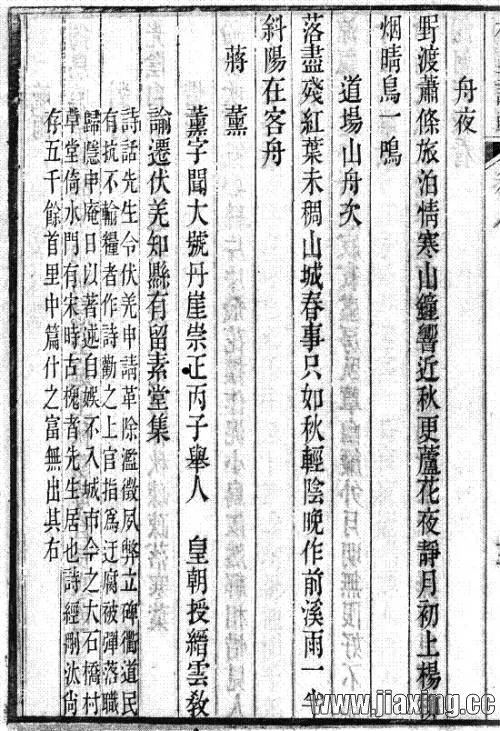 舟夜
野渡蕭條旅泊情寒山鐘響近秋更蘆花夜靜月初上楊柳
烟晴鳥一鳴
道場山舟次
落盡殘紅葉未稠山城春事只如秋輕陰晚作前溪雨一半
斜陽在客舟
蔣薰
薰字聞大號丹崖崇正丙子舉人　皇朝授縉雲敎
諭遷伏羌知縣有留素堂集
詩話先生令伏羌申請革除濫徵夙弊立碑衢道民
有抗不輸糧者作詩勸之上官指爲迂腐被彈落職
歸隱申庵日以著述自娛不入城市今之大石橋村
草堂倚水門有宋時古槐者先生居也詩經刪汰尙
存五千餘首里中篇什之富無出其右
www.jiaxing.cc